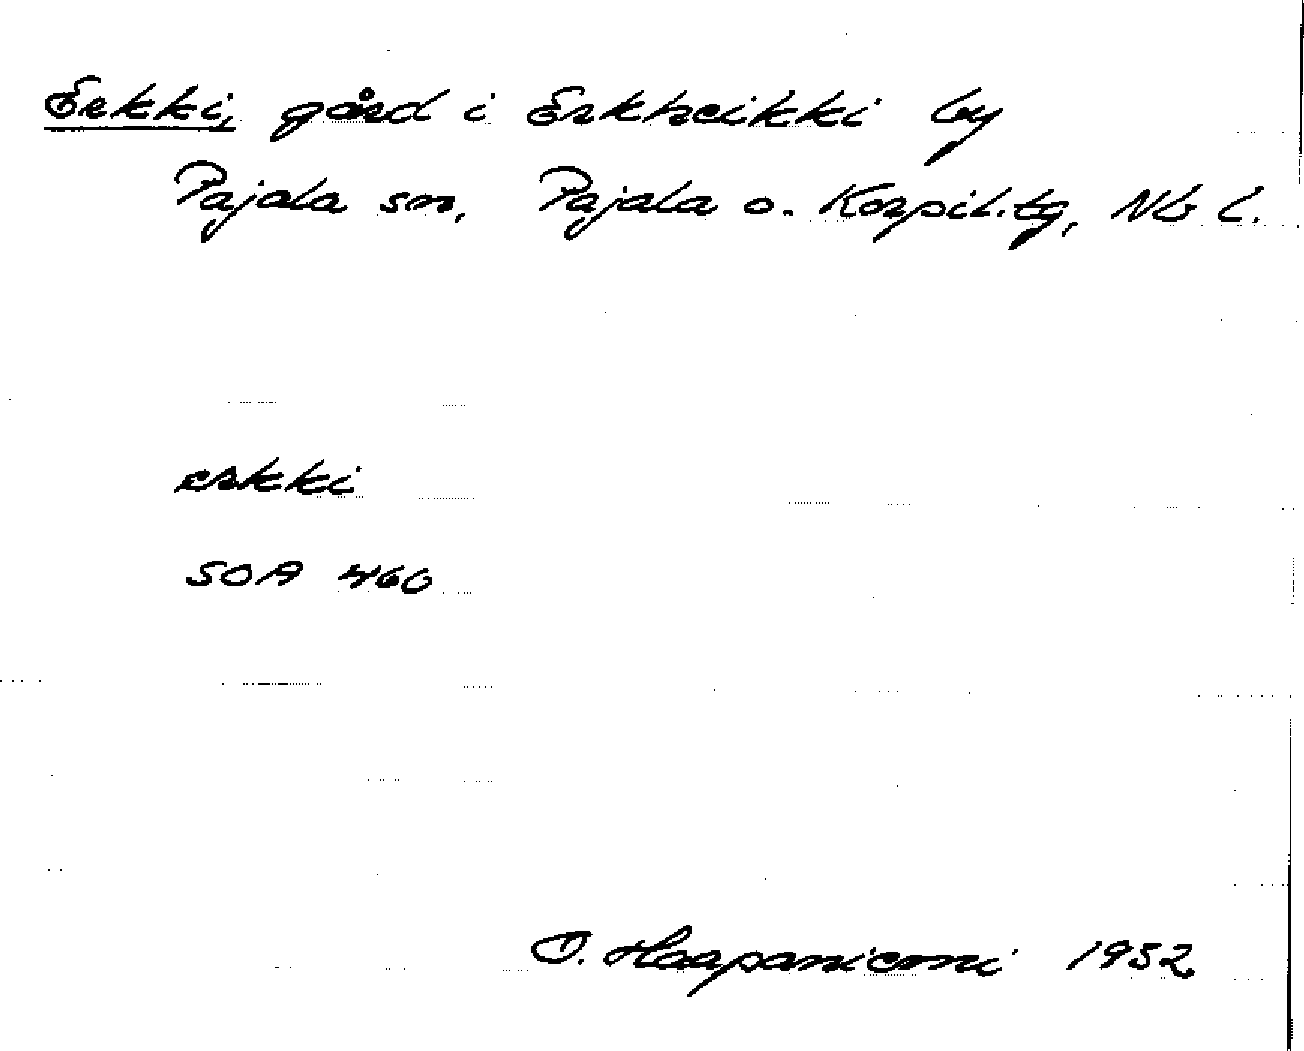 Erkki, gård i Erkheikki by
Pajala sn, Pajala o. Korpil. tg, Nb l.
erkki
SOA 460
O. Haapaniemi 1952